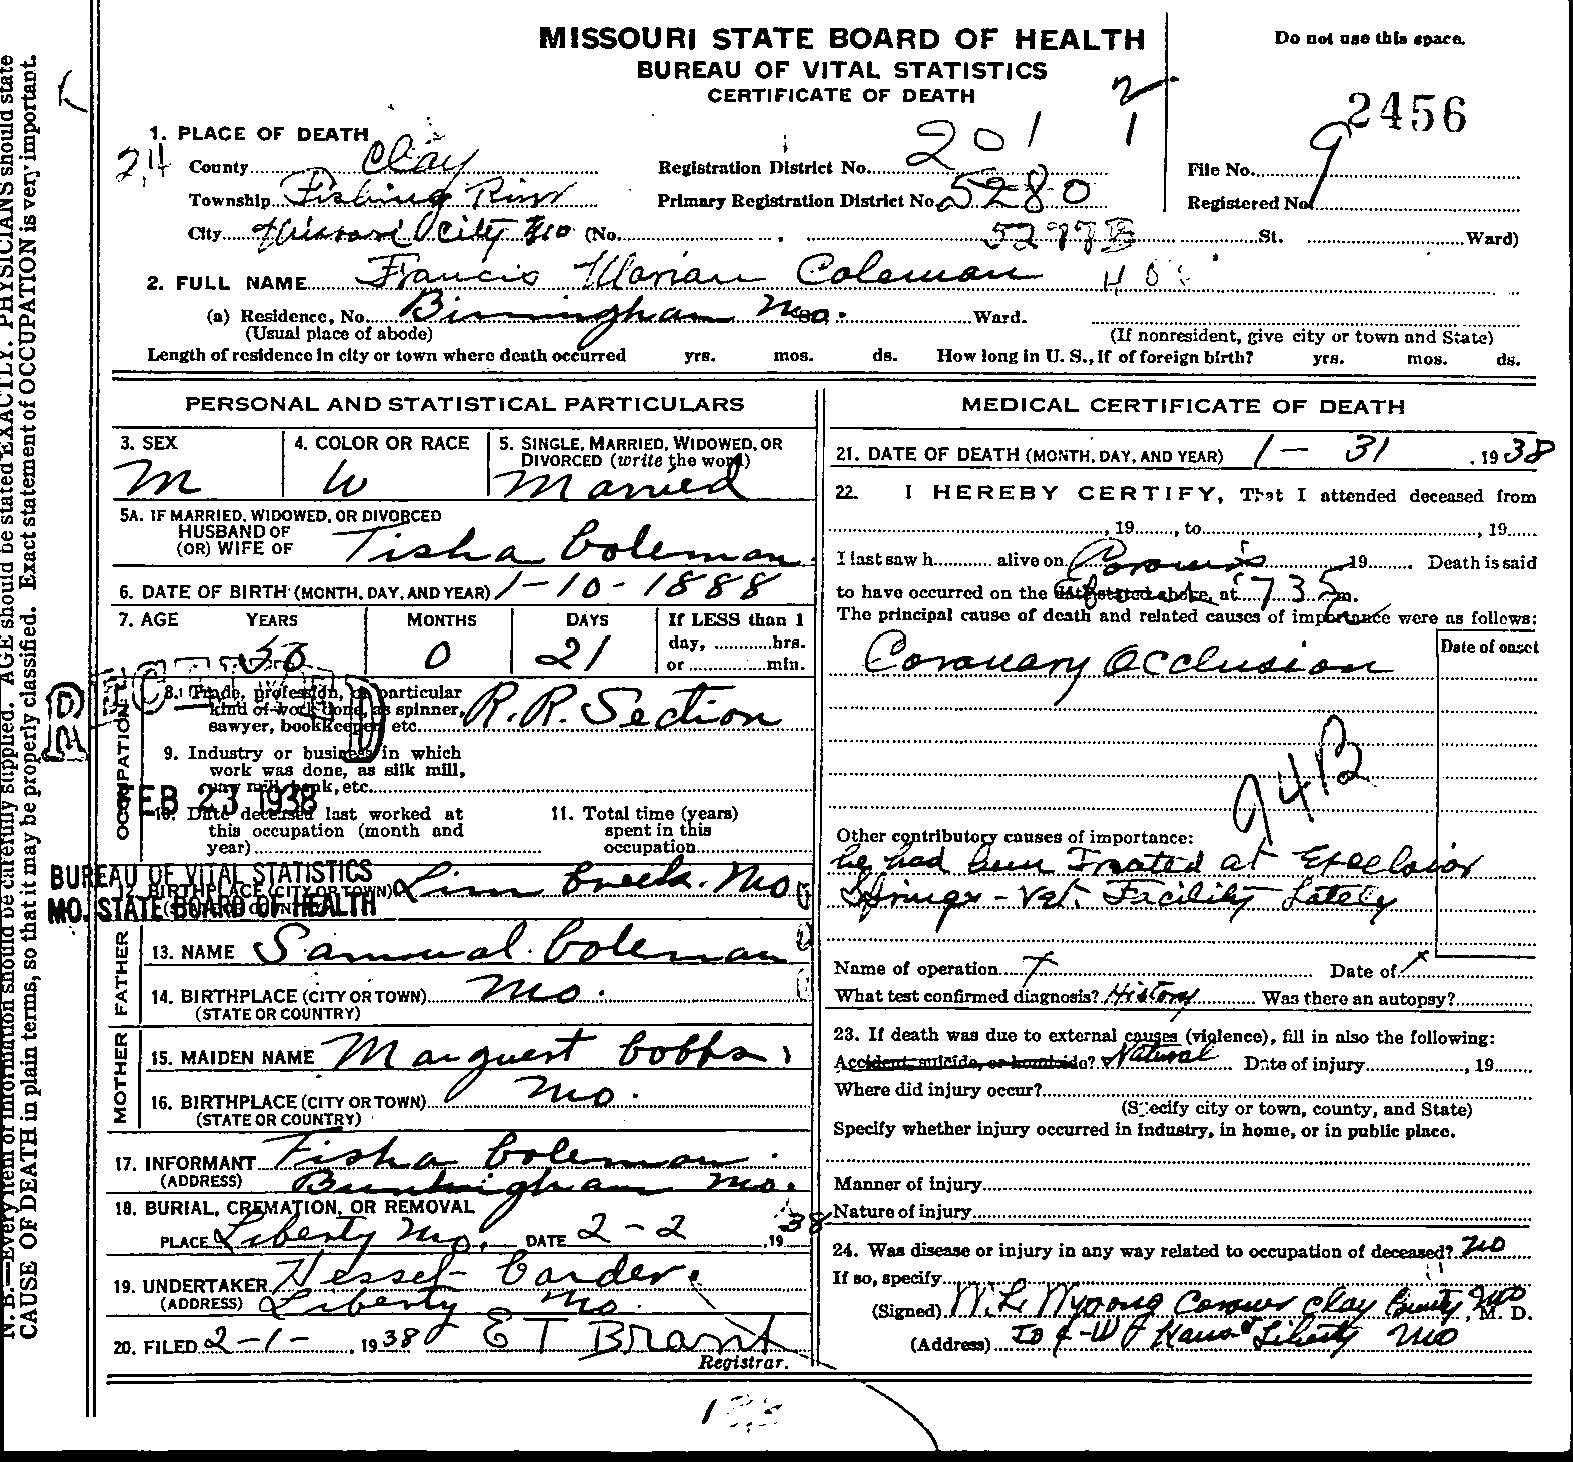 MISSOURI STATE BOARD OF HEALTH
BUREAU OF VITAL STATISTICS
CERTIFICATE OF DEATH
Do not use this space.
2
1
2456
1. PLACE OF DEATH
24
County Clay
Township Fishing River
City Missouri City Mo (No. St. Ward)
Registration District No. 201
Primary Registration District No. 5280
5297B
File No.
Registered No. 9
2. FULL NAME Francis Marian Coleman
(a) Residence, No. Birmingham Mo. Ward.
(Usual place of abode)
(If nonresident, give city or town and State)
Length of residence in city or town where death occurred yrs. mos. ds. How long in U. S., if of foreign birth? yrs. mos. ds.
PERSONAL AND STATISTICAL PARTICULARS
3. SEX
M
4. COLOR OR RACE
W
5. SINGLE, MARRIED, WIDOWED, OR
DIVORCED (write the word)
Married
5A. IF MARRIED, WIDOWED, OR DIVORCED
HUSBAND OF
(OR) WIFE OF Tisha Coleman
6. DATE OF BIRTH (MONTH, DAY, AND YEAR) 1-10-1888
7. AGE YEARS MONTHS DAYS If LESS than 1
day, hrs.
or min.
50 0 21
OCCUPATION
8. Trade, profession, or particular
kind of work done, as spinner,
sawyer, bookkeeper, etc. R.R. Section
9. Industry or business in which
work was done, as silk mill,
saw mill, bank, etc.
10. Date deceased last worked at
this occupation (month and
year)
11. Total time (years)
spent in this
occupation
RECEIVED
FEB 23 1938
BUREAU OF VITAL STATISTICS
MO. STATE BOARD OF HEALTH
12. BIRTHPLACE (CITY OR TOWN) Linn Creek. Mo
FATHER
13. NAME Samual Coleman
14. BIRTHPLACE (CITY OR TOWN) Mo.
(STATE OR COUNTRY)
MOTHER
15. MAIDEN NAME Marguest Cobbs
16. BIRTHPLACE (CITY OR TOWN) Mo.
(STATE OR COUNTRY)
17. INFORMANT Tisha Coleman.
(ADDRESS) Birmingham Mo.
18. BURIAL, CREMATION, OR REMOVAL
PLACE Liberty Mo. DATE 2-2, 1938
19. UNDERTAKER Hessel Carder.
(ADDRESS) Liberty Mo.
20. FILED 2-1-, 1938 E T Brant
Registrar.
MEDICAL CERTIFICATE OF DEATH
21. DATE OF DEATH (MONTH, DAY, AND YEAR) 1-31, 1938
22. I HEREBY CERTIFY, That I attended deceased from
, 19 , to , 19
I last saw h alive on 19 Death is said
to have occurred on the date stated above, at 735 m.
The principal cause of death and related causes of importance were as follows:
Date of onset
Coronary Occlusion
94B
Other contributory causes of importance:
he had been Treated at Excelsior
Springs - Vet. Facility Lately
Name of operation Date of
What test confirmed diagnosis? History Was there an autopsy?
23. If death was due to external causes (violence), fill in also the following:
Accident, suicide, or homicide? Natural Date of injury , 19
Where did injury occur?
(Specify city or town, county, and State)
Specify whether injury occurred in industry, in home, or in public place.
Manner of injury
Nature of injury
24. Was disease or injury in any way related to occupation of deceased? no
If so, specify
(Signed) Coroner Clay County Mo, M. D.
(Address) Liberty Mo
N. B.—Every item of information should be carefully supplied. AGE should be stated EXACTLY. PHYSICIANS should state
CAUSE OF DEATH in plain terms, so that it may be properly classified. Exact statement of OCCUPATION is very important.